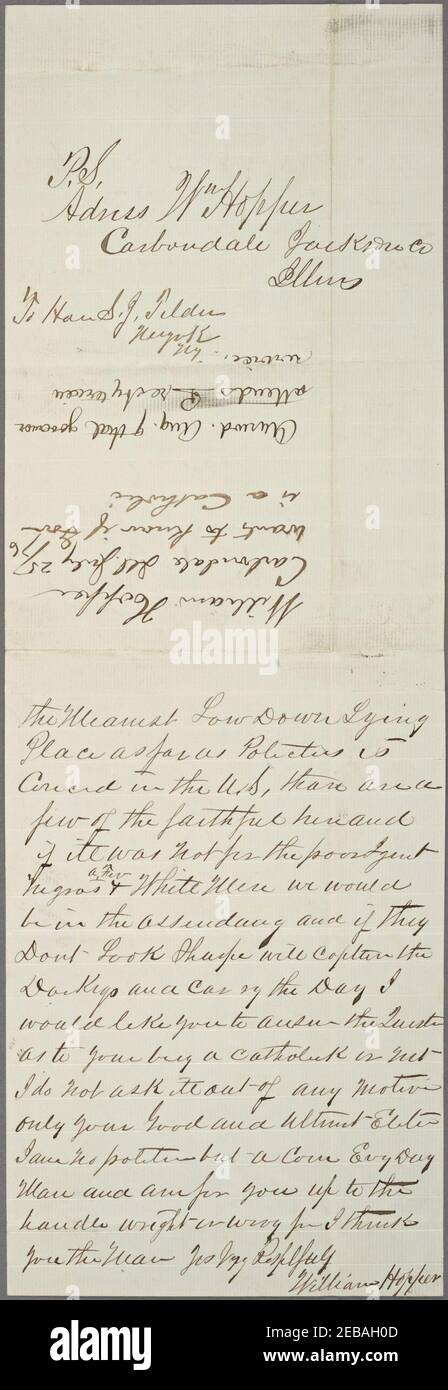 P.S.
Adriss Wm Hopper
Carbondale Jackson Co
Illins
To Hon S. J. Tilden
NewYork
Ny
William Hopper
Carbondale Ill. July 25/76
wants to know if Gov
is a Catholic
Answd. Aug. 9 that governor
attends Presbyterian
service.
the Meanest Low Down Lying
Place as far as Polictics is
Concrd in the U.S, thare are a
few of the faithful here and
if it was Not for the poor Igent
Negros & a Few White Men we would
be in the assendancy and if they
Dont Look Sharpe will capture the
Darkeys and Carry the Day I
would like you to answr the Questn
as to your beig a catholick or not
I do not ask it out of any Motive
only your Good and Ultimt Elctn
I am No politin but a Com Evry Day
Man and am for you up to the
handle wright or wrog for I think
you the Man Yrs Vry Respfuly
William Hopper
alamy
Image ID: 2EBAH0D
www.alamy.com